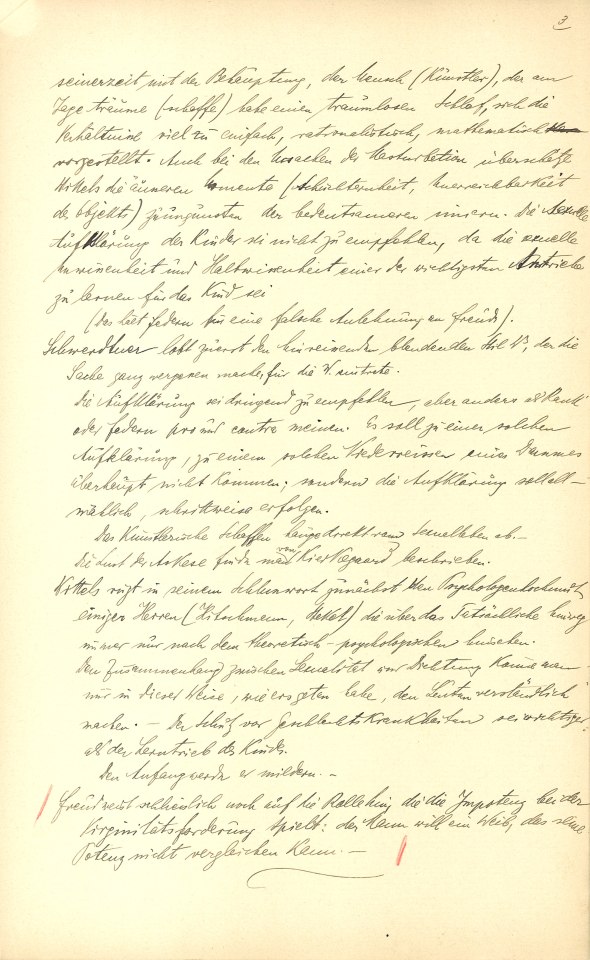 3
seinerzeit mit der Behauptung, der Mensch (Künstler), der am
Tage träume (schaffe) habe einen traumlosen Schlaf, sich die
Verhältnisse viel zu einfach, rationalistisch, mathematisch
vorgestellt. Auch bei den Ursachen der Masturbation überschätze
Wittels die äusseren Momente (Schüchternheit, Unerreichbarkeit
des Objekts) zuungunsten der bedeutsameren innern. Die sexuelle
Aufklärung der Kinder sei nicht zu empfehlen, da die sexuelle
Unwissenheit und Halbwissenheit einer der wichtigsten Antriebe
zu lernen für das Kind sei
(Das hält Federn für eine falsche Anlehnung an Freud).
Schwerdtner lobt zuerst den hinreissenden blendenden Stil W's, der die
Sache ganz vergessen mache, für die W. eintrete.
Die Aufklärung sei dringend zu empfehlen, aber anders als Rank
oder Federn pro und contra meinen. Es soll zu einer solchen
Aufklärung, zu einem solchen Niederreissen eines Dammes
überhaupt nicht kommen; sondern die Aufklärung soll all-
mählich, schrittweise erfolgen.
Das künstlerische Schaffen hänge direkt vom Sexualleben ab. —
Die Lust der Askese finde man von Kierkegaard beschrieben.
Wittels rügt in seinem Schlusswort zunächst den Psychologenhochmut
einiger Herren (Hitschmann, Stekel) die über das Tatsächliche hinweg
immer nur nach dem theoretisch-psychologischen hinsehen.
Den Zusammenhang zwischen Sexualität und Dichtung könne man
nur in dieser Weise, wie er's getan habe, den Leuten verständlich
machen. — Der Schutz vor Geschlechtskrankheiten sei wichtiger,
als der Lerntrieb des Kindes.
Den Anfang werde er mildern. —
Freud weist schliesslich noch auf die Rolle hin, die die Impotenz bei der
Virginitätsforderung spielt: der Mann will ein Weib, das seine
Potenz nicht vergleichen kann. —